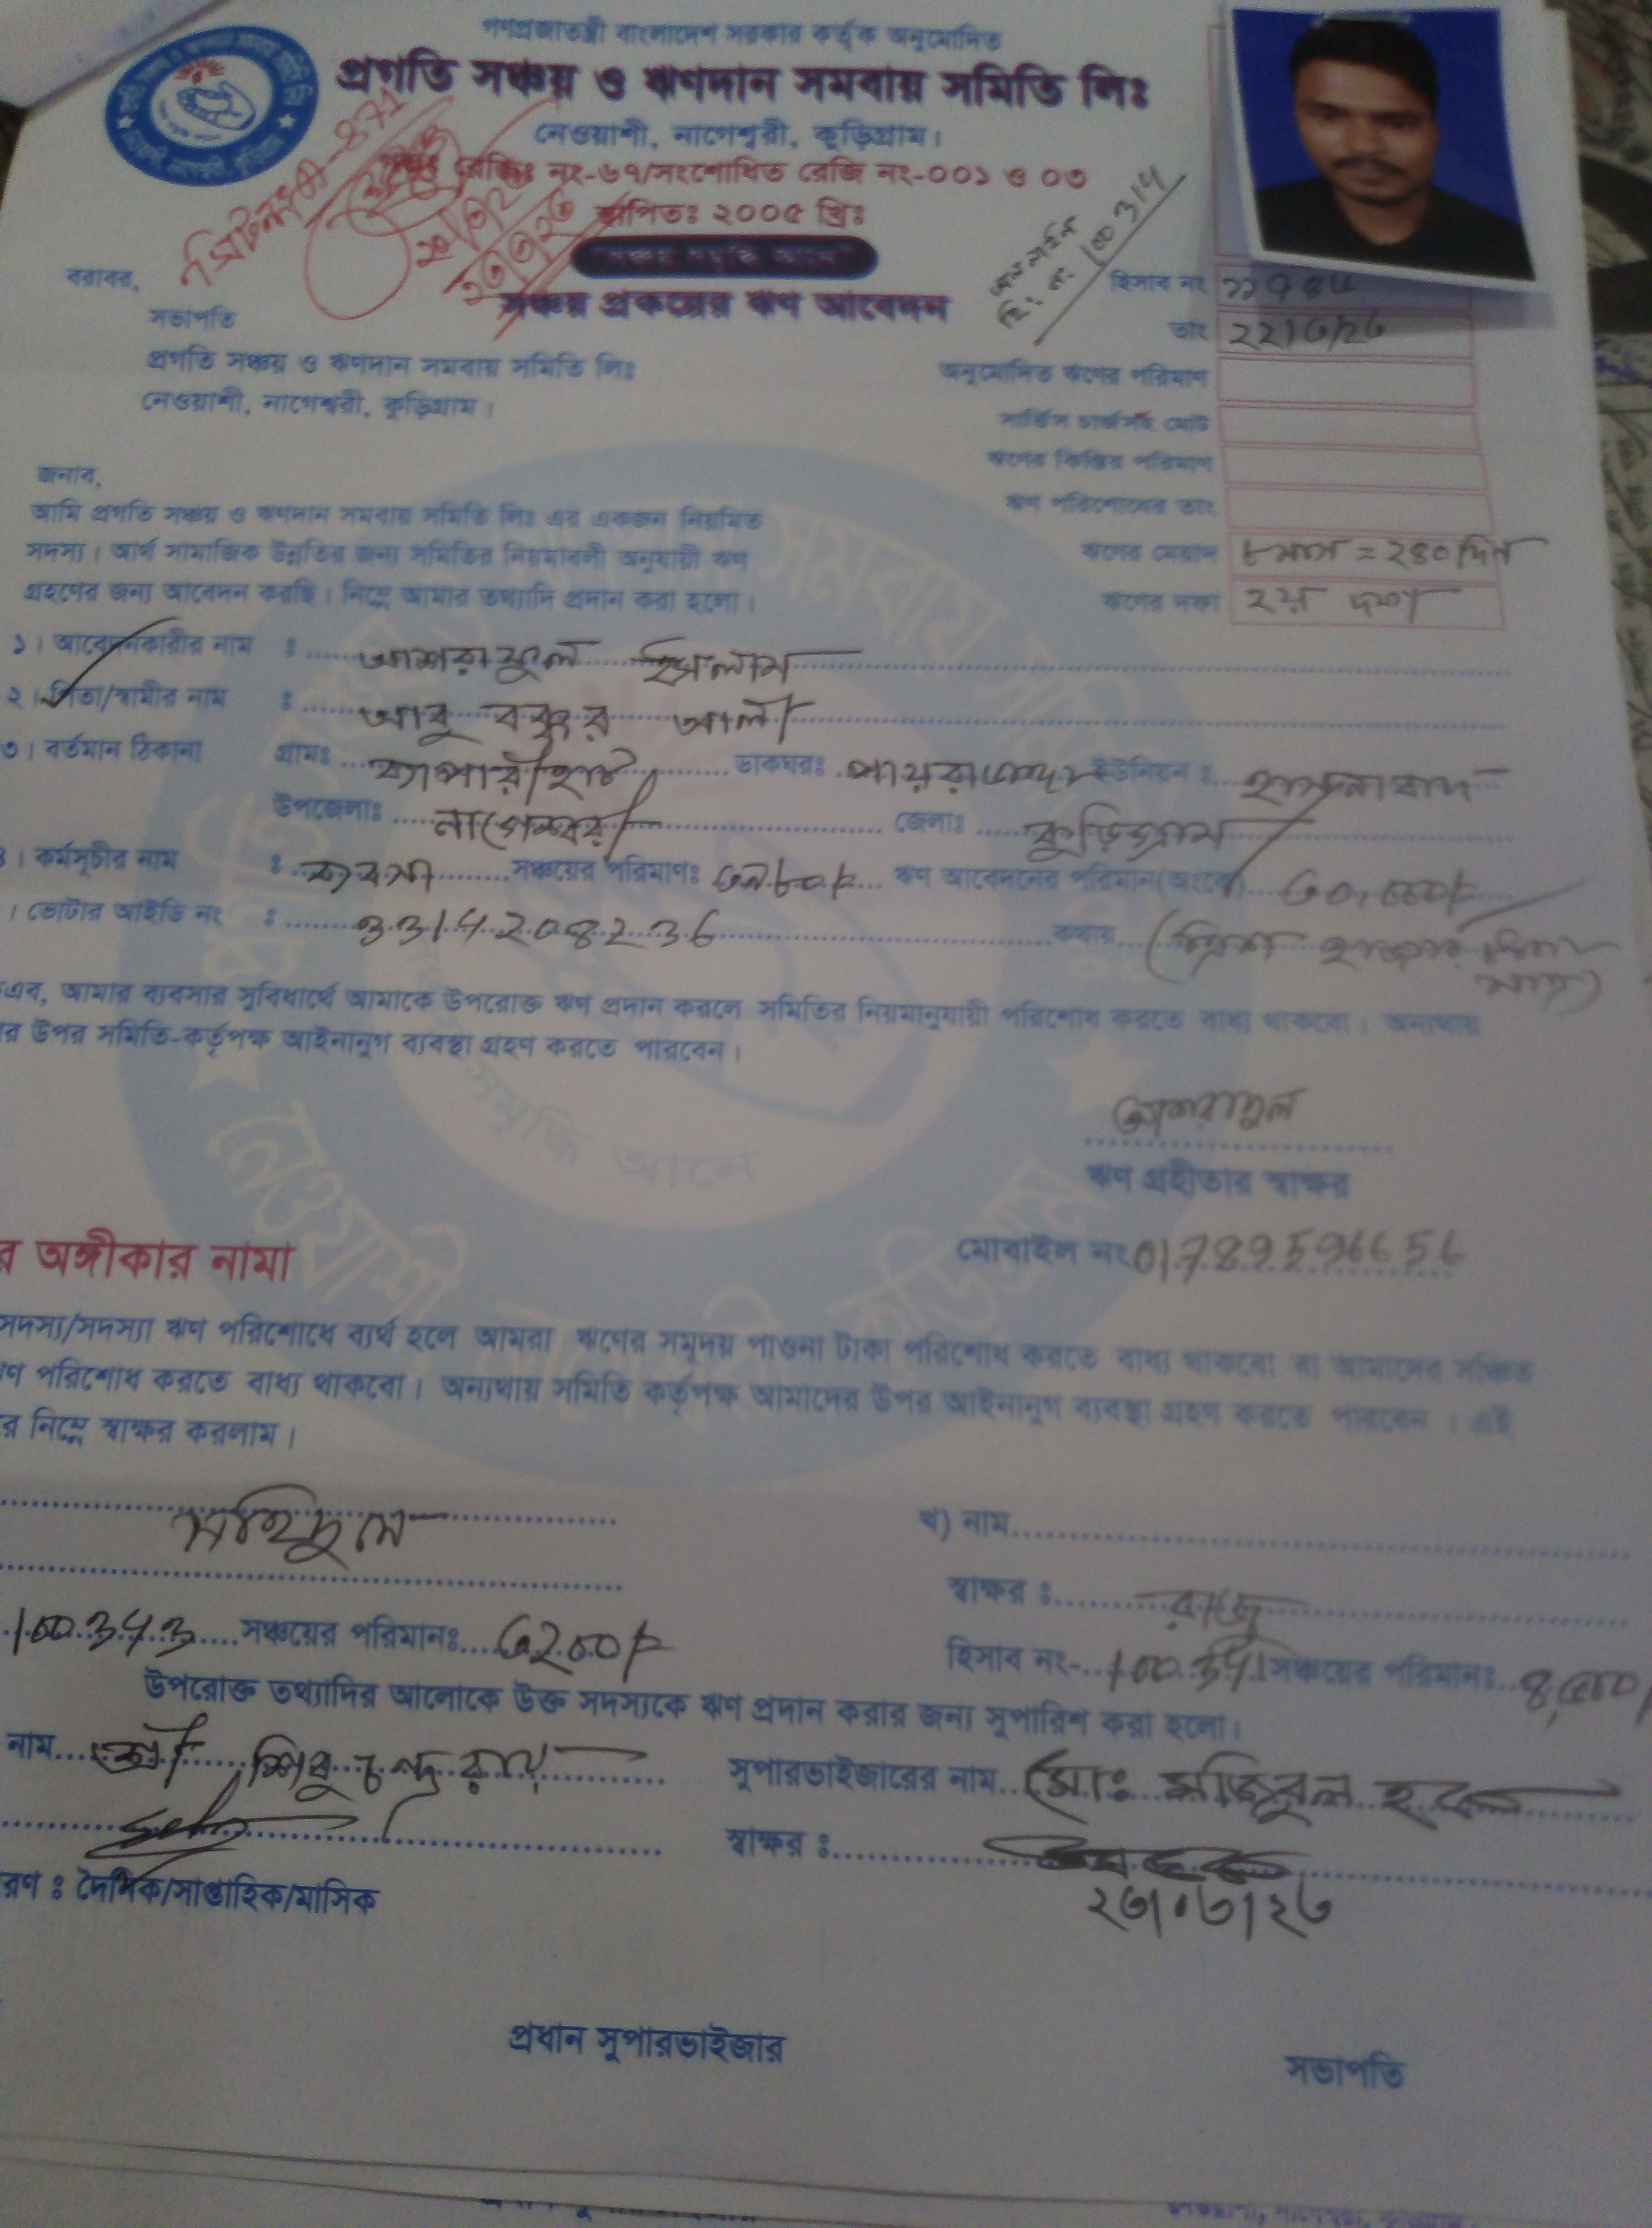 গণপ্রজাতন্ত্রী বাংলাদেশ সরকার কর্তৃক অনুমোদিত
প্রগতি সঞ্চয় ও ঋণদান সমবায় সমিতি লিঃ
নেওয়াশী, নাগেশ্বরী, কুড়িগ্রাম।
রেজিঃ নং-৬৭/সংশোধিত রেজি নং-০০১ ও ০৩
স্থাপিতঃ ২০০৫ খ্রিঃ
সঞ্চয় সমৃদ্ধি আনে
সঞ্চয় প্রকল্পের ঋণ আবেদন
হিঃ নং 100314
হিসাব নং
তাং ২২/৩/২৬
বরাবর,
সভাপতি
প্রগতি সঞ্চয় ও ঋণদান সমবায় সমিতি লিঃ
নেওয়াশী, নাগেশ্বরী, কুড়িগ্রাম।
অনুমোদিত ঋণের পরিমাণ
সার্ভিস চার্জসহ মোট
ঋণের কিস্তির পরিমাণ
ঋণ পরিশোধের তাং
ঋণের মেয়াদ ৮ মাস = ২৪০ দিন
ঋণের দফা ২য় দফা
জনাব,
আমি প্রগতি সঞ্চয় ও ঋণদান সমবায় সমিতি লিঃ এর একজন নিয়মিত
সদস্য। আর্থ সামাজিক উন্নতির জন্য সমিতির নিয়মাবলী অনুযায়ী ঋণ
গ্রহণের জন্য আবেদন করছি। নিম্নে আমার তথ্যাদি প্রদান করা হলো।
১। আবেদনকারীর নাম : আশরাফুল ইসলাম
২। পিতা/স্বামীর নাম : আবু বক্কর আলী
৩। বর্তমান ঠিকানা গ্রামঃ ব্যাপারীহাট ডাকঘরঃ পায়রাডাঙ্গা ইউনিয়ন : হাসনাবাদ
উপজেলাঃ নাগেশ্বরী জেলাঃ কুড়িগ্রাম
৪। কর্মসূচীর নাম : ব্যবসা সঞ্চয়ের পরিমাণঃ ঋণ আবেদনের পরিমান(অংকে) ৩০,০০০/-
। ভোটার আইডি নং : 3314208236 কথায় (ত্রিশ হাজার টাকা মাত্র)
এব, আমার ব্যবসার সুবিধার্থে আমাকে উপরোক্ত ঋণ প্রদান করলে সমিতির নিয়মানুযায়ী পরিশোধ করতে বাধ্য থাকবো। অন্যথায়
র উপর সমিতি-কর্তৃপক্ষ আইনানুগ ব্যবস্থা গ্রহণ করতে পারবেন।
আশরাফুল
ঋণ গ্রহীতার স্বাক্ষর
মোবাইল নং
র অঙ্গীকার নামা
সদস্য/সদস্যা ঋণ পরিশোধে ব্যর্থ হলে আমরা ঋণের সমূদয় পাওনা টাকা পরিশোধ করতে বাধ্য থাকবো বা আমাদের সঞ্চিত
ণ পরিশোধ করতে বাধ্য থাকবো। অন্যথায় সমিতি কর্তৃপক্ষ আমাদের উপর আইনানুগ ব্যবস্থা গ্রহণ করতে পারবেন। এই
র নিম্নে স্বাক্ষর করলাম।
খ) নাম
স্বাক্ষর :
100343 সঞ্চয়ের পরিমানঃ ৩২০০/-
হিসাব নং- 100341 সঞ্চয়ের পরিমানঃ
উপরোক্ত তথ্যাদির আলোকে উক্ত সদস্যকে ঋণ প্রদান করার জন্য সুপারিশ করা হলো।
নাম শ্রী শিবু চন্দ্র রায় সুপারভাইজারের নাম মোঃ মজিবুল হক
স্বাক্ষর :
২৩/০৩/২৬
রণ : দৈনিক/সাপ্তাহিক/মাসিক
প্রধান সুপারভাইজার
সভাপতি